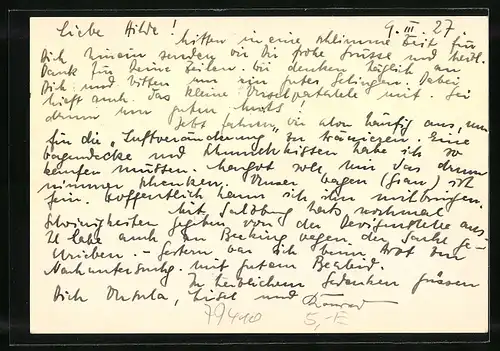 Liebe Hilde! 9. III. 27
Mitten in eine schlimme Zeit für
Dich hinein senden wir Dir frohe Grüsse und herzl.
Dank für Deine Zeilen. Wir denken täglich an
Dich und bitten um ein gutes Gelingen. Dabei
hilft auch das kleine mit. Sei
darum um guten Muts!
Jetzt fahren wir aber häufig aus, um
für die "Luftveränderung" zu trainieren. Eine
Wagendecke und habe ich so
kaufen müssen. Margot soll mir das drum
nimmer schenken. Unser Wagen (Gian) ist
fein. Hoffentlich kann ich ihn mitbringen.
Mit Salzburg hats nochmal
Schwierigkeiten gegeben von der Devisenstelle aus.
Ich habe auch an wegen der Sache ge-
schrieben. - Gestern war ich beim Arzt zur
Nachuntersuchg. mit gutem Bescheid.
In herzlichem Gedenken grüssen
Dich Ursula, Liesel und Konrad
79410
5,-E